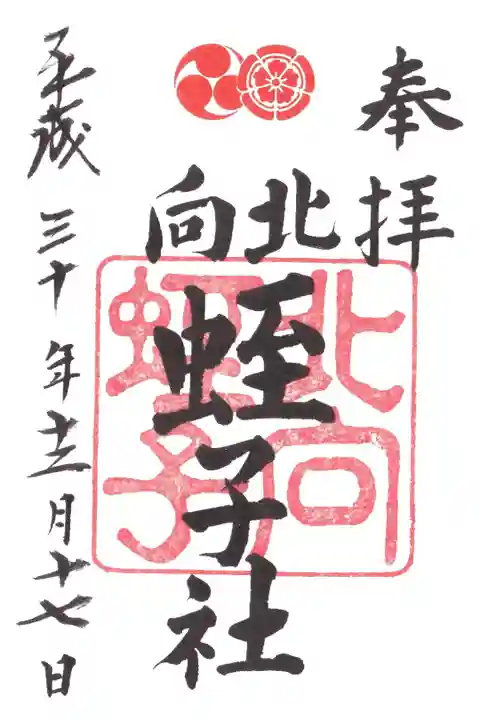 奉拝
北向
蛭子社
北向
蛭子
平成三十年十二月十七日